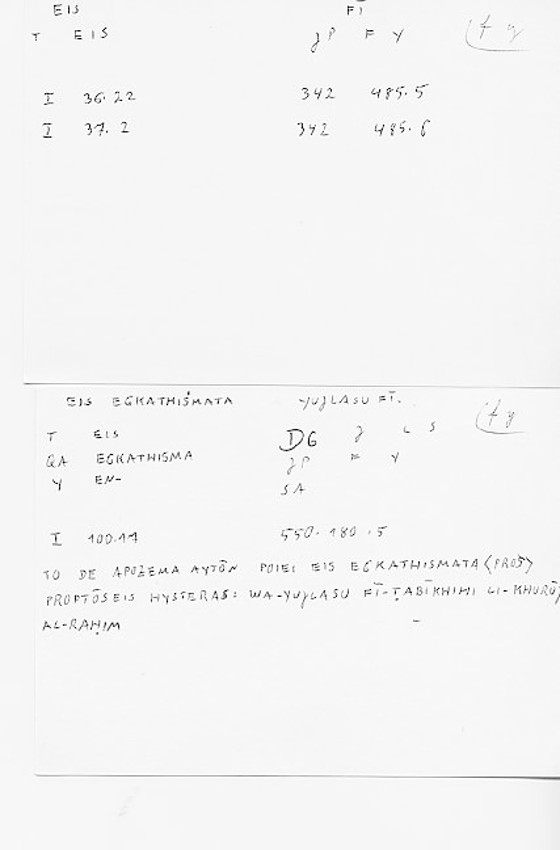 EIS FĪ
T EIS ȷP F Y
I 36.22 342 485.5
I 37.2 342 485.6
EIS EGKATHISMATA YUȷLASU FĪ.
T EIS DG ȷ L S
QA EGKATHISMA ȷP F Y
Y EN- SA
I 100.17 550.180.5
TO DE APOZEMA AYTŌN POIEI EIS EGKATHISMATA <PROS>
PROPTŌSEIS HYSTERAS: WA-YUȷLASU FĪ-ṬABĪKHIHI LI-KHURŪȷ
AL-RAḤIM